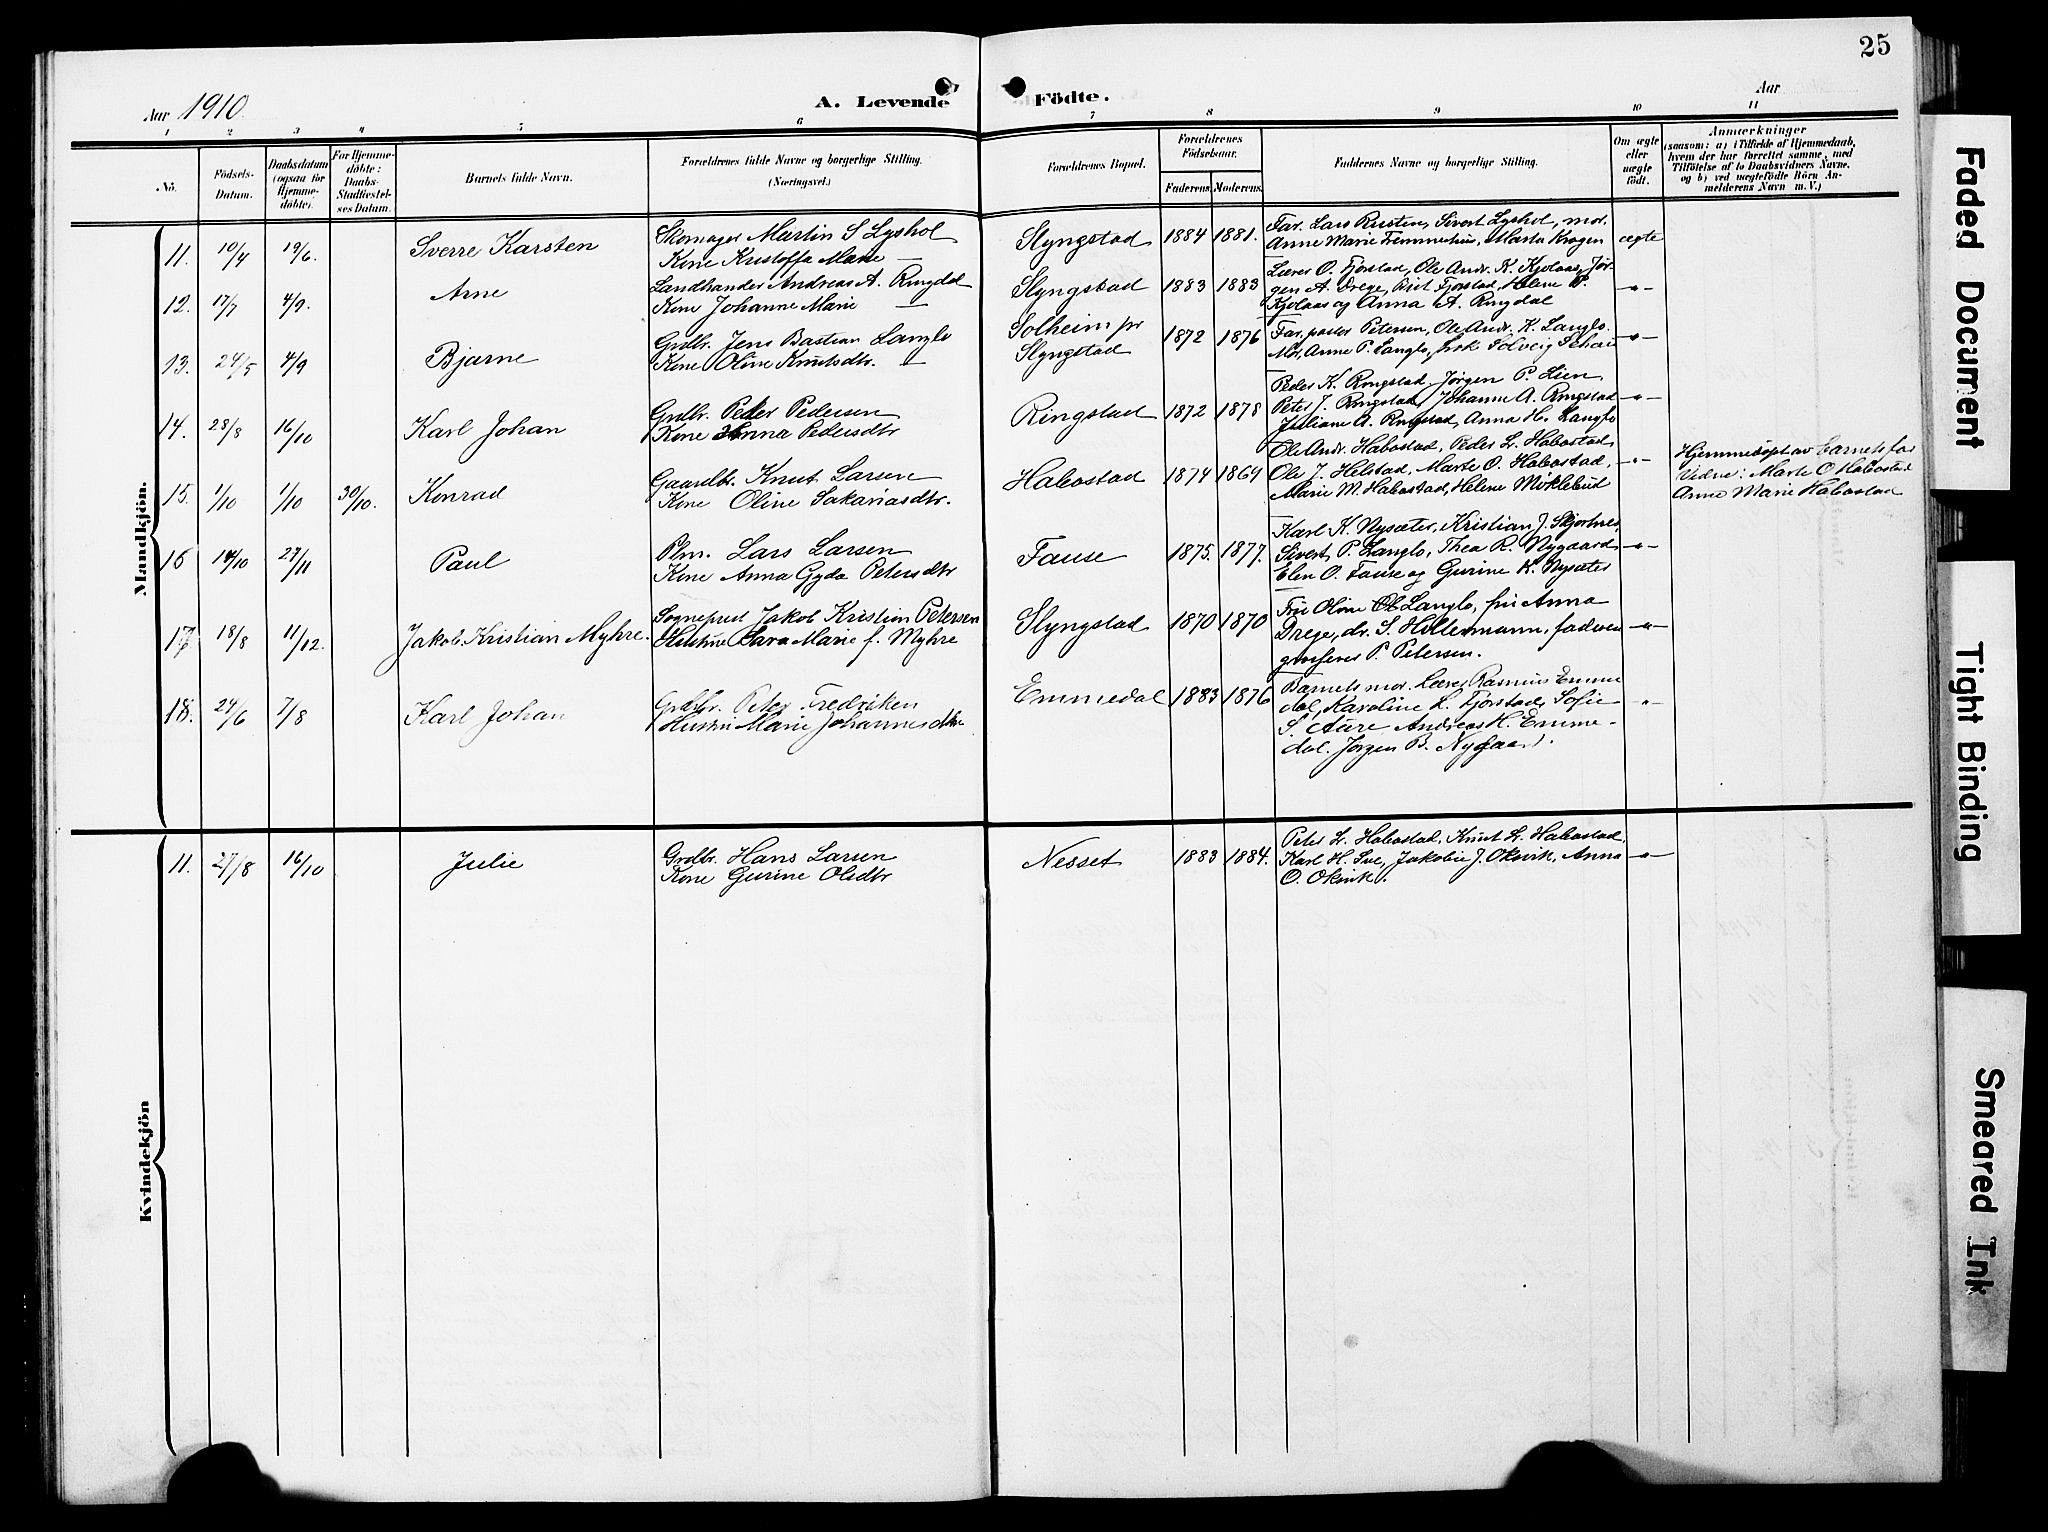 25
Aar 1910.
A. Levende Födte.
Aar
1 2 3 4 5 6 7 8 9 10 11
No.
Födsels-Datum.
Daabsdatum (ogsaa for Hjemme-döbte).
For Hjemme-döbte: Daabs-Stadfæstel-ses Datum.
Barnets fulde Navn.
Forældrenes fulde Navne og borgerlige Stilling.
(Næringsvei.)
Forældrenes Bopæl.
Forældrenes Födselsaar.
Faderens. Moderens.
Faddernes Navne og borgerlige Stilling.
Om ægte eller uægte födt.
Anmærkninger
(saasom: a) i Tilfælde af Hjemmedaab,
hvem der har forrettet samme, med
Tilföielse af to Daabsvidners Navne,
og b) ved uægtefödte Börn An-
melderens Navn m. V.)
Mandkjön.
11. 10/4 19/6. Sverre Karsten
Skomager Martin S Lyshol
Kone Kristoffa Marie —
Slyngstad 1884 1881.
Far. Lars Rusten, Sivert Lyshol, mor.
Anne Marie Fremmerhus, Marta Krogen
ægte
12. 17/7 4/9. Arne
Landhandler Andreas A. Ringdal
Kone Johanne Marie —
Slyngstad 1883 1883
Lærer O. Fjørstad, Ole Andr. K. Kjølaas, Jør-
gen A. Drege, Birit Fjørstad, Helene P.
Kjølaas og Anna A. Ringdal
-"-
13. 24/5 4/9 Bjarne
Grdbr. Jens Bastian Langlo
Kone Oline Knutsdtr. —
Solheim pr
Slyngstad 1872 1876
Far, pastor Petersen, Ole Andr. K. Langlo.
Mor, Anne P. Langlo, frøk Solveig Schau
-"-
14. 28/8 16/10 Karl Johan
Grdbr. Peder Pedersen
Kone Anna Pedersdtr
Ringstad 1872 1878
Peder K. Ringstad, Jørgen P. Lien,
Peter J. Ringstad, Johanne A. Ringstad
Juliane A. Ringstad, Anna H. Langlo
-"-
15. 1/10 1/10 30/10. Konrad
Gaardbr. Knut Larsen
Kone Oline Sakariasdtr.
Habostad 1874 1869
Ole Andr. Habostad, Peder L. Habostad,
Ole J. Helstad, Marte O. Habostad,
Marie M. Habostad, Helene Møklebust
-"-
Hjemmedøpt av barnets far
Vidne: Marte O Habostad
Anne Marie Habostad
16 14/10 27/11 Paul
Plm. Lars Larsen
Kone Anna Gyda Petersdtr
Fause 1875. 1877.
Karl K. Nysæter, Kristian J. Skjortnes,
Sivert P. Langlo, Thea R. Nygaard
Elen O. Fause og Gurine K. Nysæter
-"-
17 18/8 11/12. Jakob Kristian Myhre.
Sogneprest Jakob Kristian Petersen
Hustru Sara Marie f. Myhre
Slyngstad 1870 1870
Fru Oline Langlo, fru Anna
Drege, dr. S. Holtermann, faderen
grosserer P. Petersen.
-"-
18. 24/6 7/8 Karl Johan
Grdbr. Peter Fredriksen
Hustru Marie Johannesdtr
Emmedal 1883 1876
Barnets mor. Lærer Rasmus Emme
dal, Karoline L. Fjørstad, Sofie
S. Aure Andreas H. Emme-
dal. Jørgen B. Nygaard.
-"-
Kvindekjön
11. 27/8 16/10 Julie
Grdbr. Hans Larsen
Kone Gurine Olsdtr
Nesset 1883 1884.
Peter L. Habostad, Knut L. Habostad,
Karl H. Sve, Jakobie J. Oksvik, Anna
O. Oksvik.
-"-
Faded Document
Tight Binding
Smeared Ink